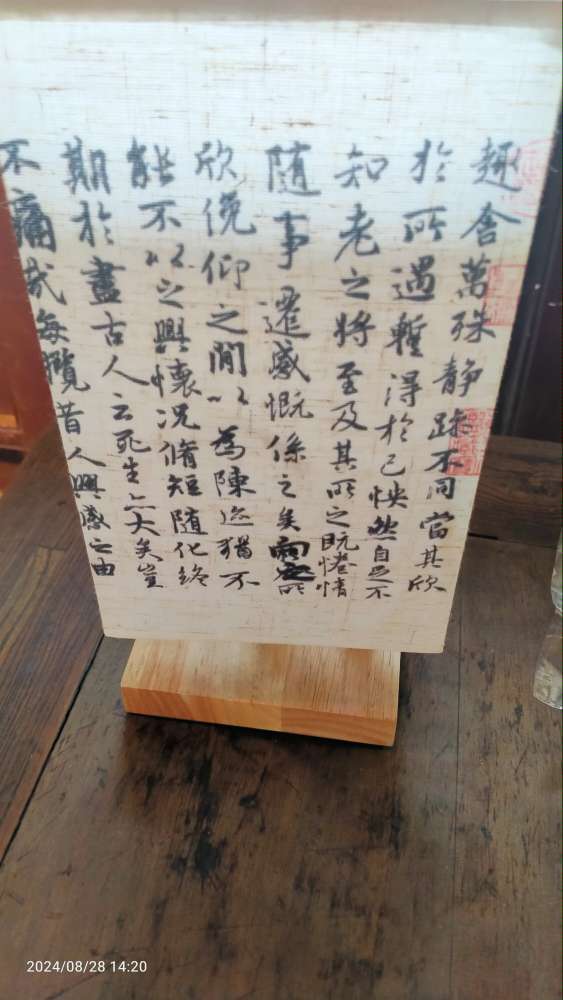 趣舎萬殊静躁不同當其欣
於所遇暫得於己怏然自足不
知老之將至及其所之既惓情
随事遷感慨係之矣向之所
欣俛仰之閒以為陳迹猶不
能不以之興懷況脩短随化終
期於盡古人云死生亦大矣豈
不痛哉每攬昔人興感之由
2024/08/28 14:20